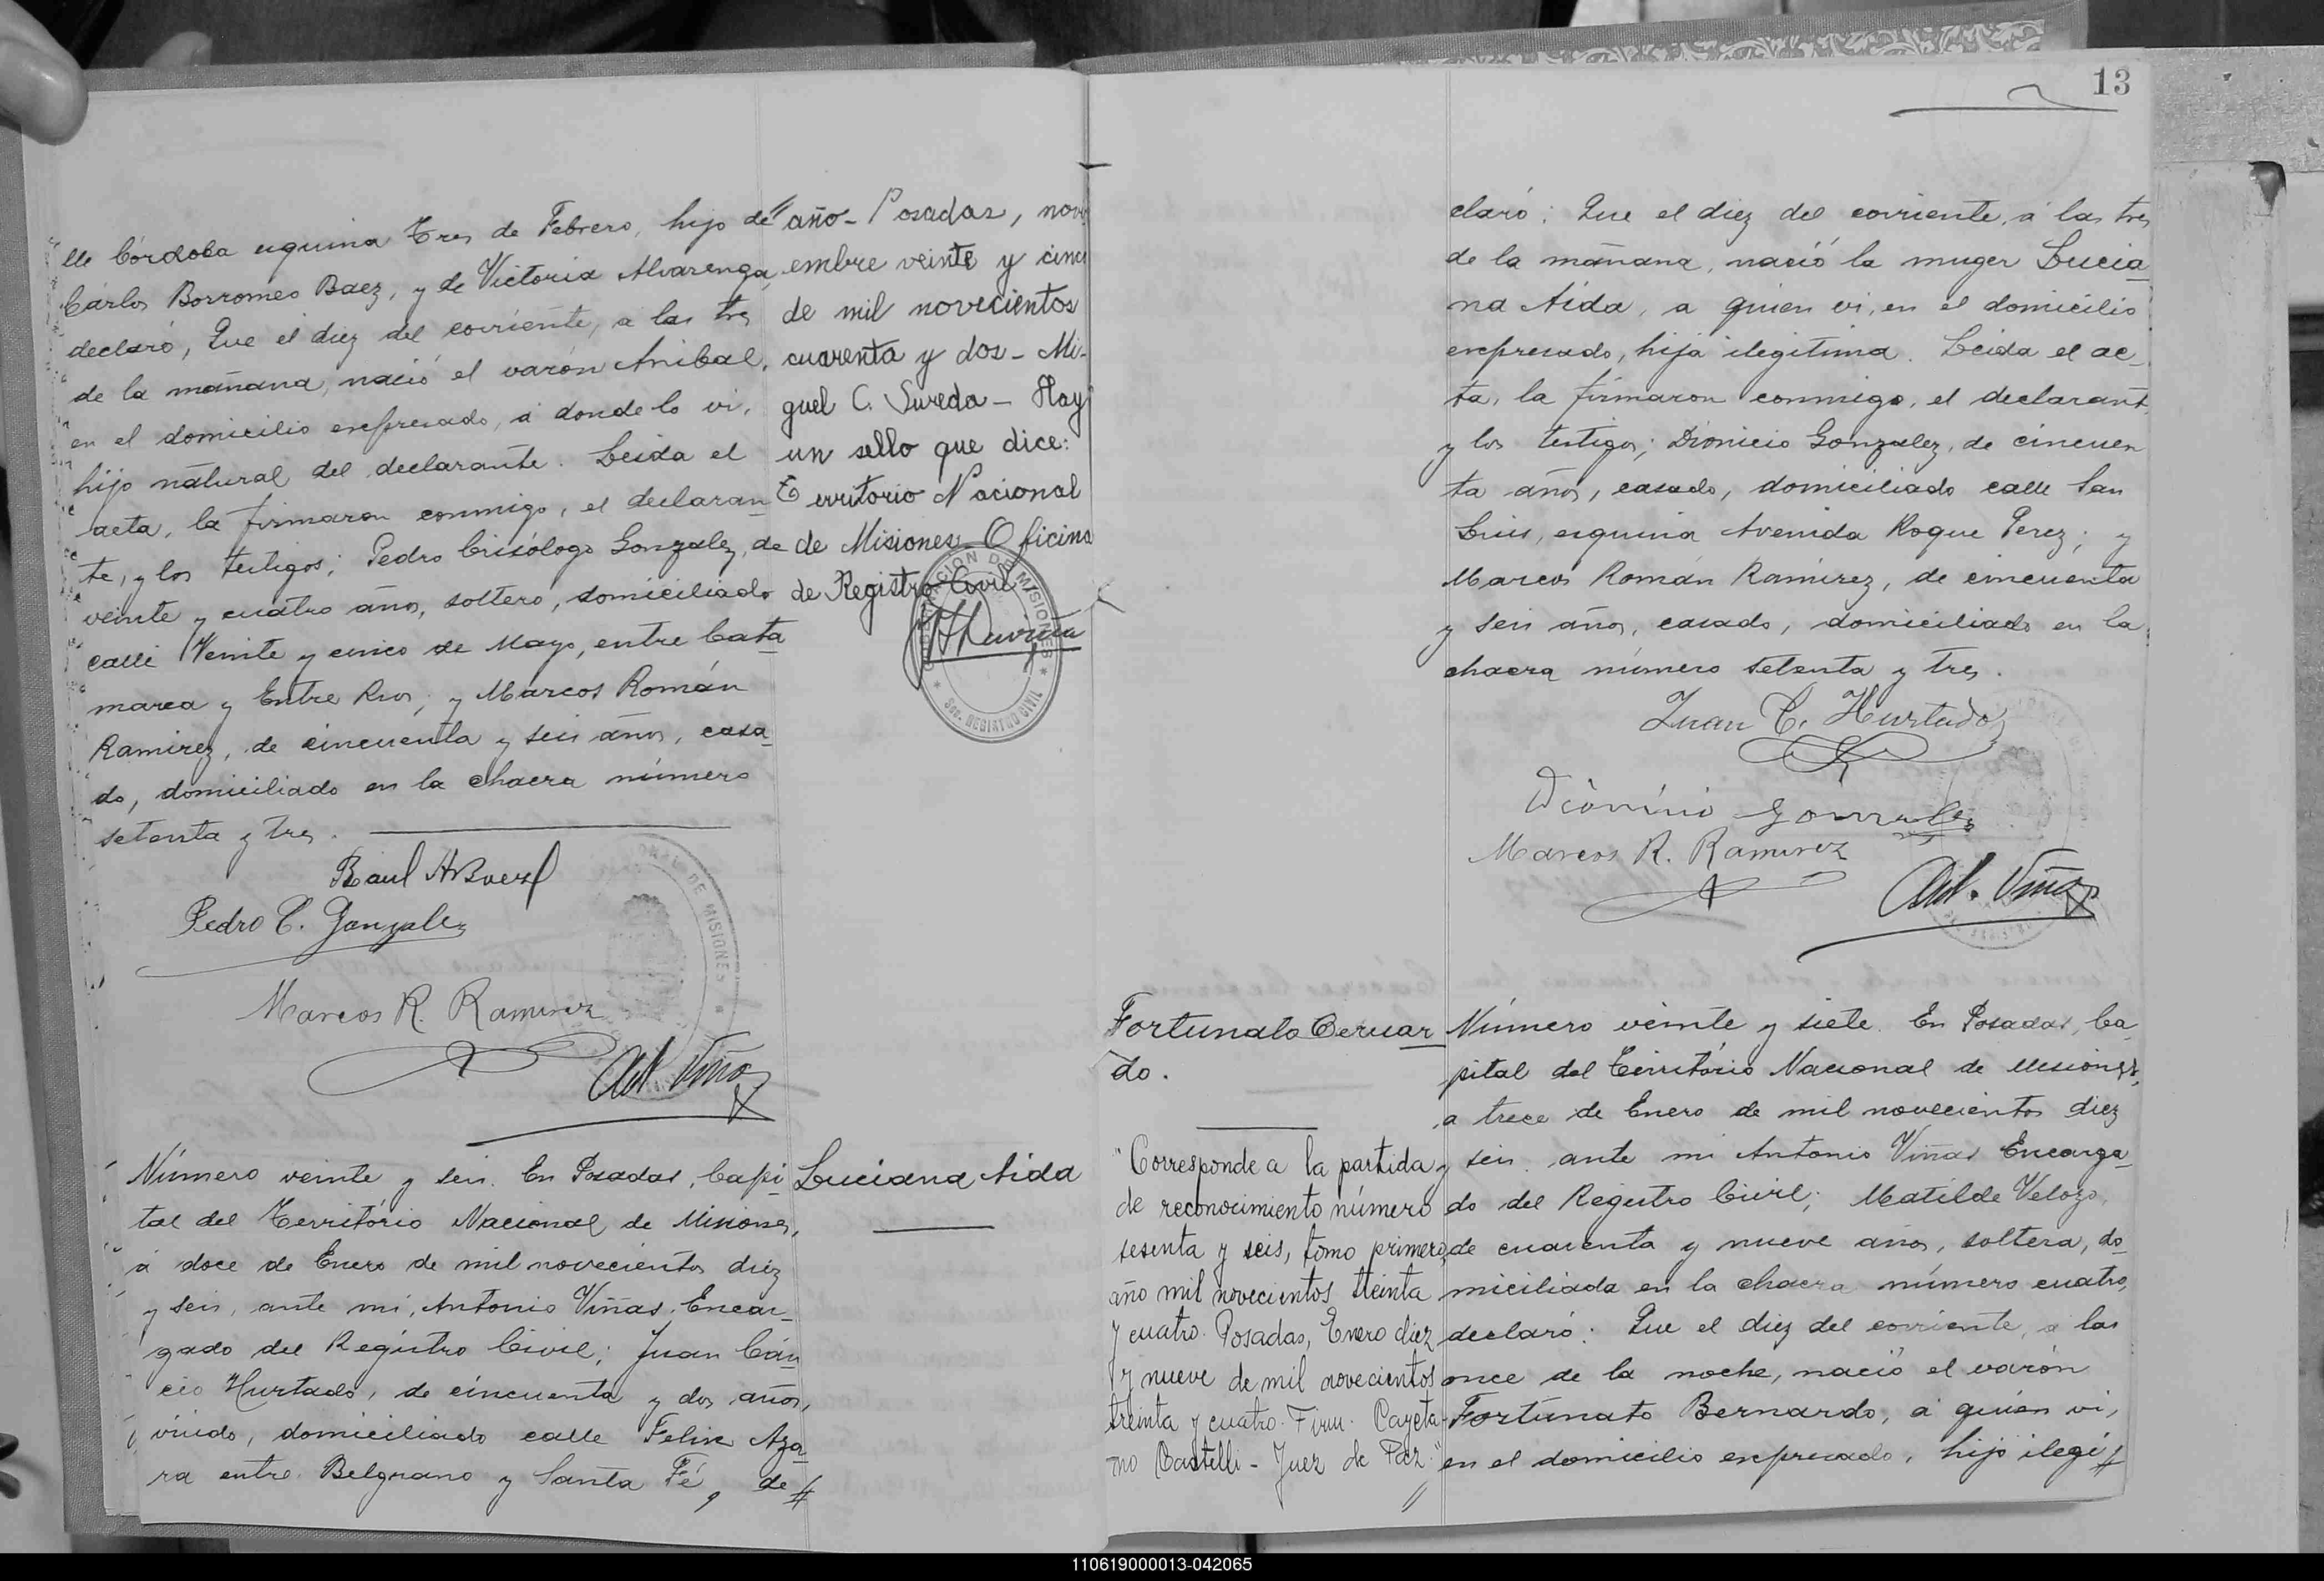 lle Córdoba esquina Tres de Febrero, hijo de
Cárlos Borromeo Baez, y de Victoria Alvarenga,
declaró, Que el diez del corriente, a las tres
de la mañana, nació el varón Anibal,
en el domicilio expresado, a donde lo vi,
hijo natural del declarante. Leida el
acta, la firmaron conmigo, el declaran
te, y los testigos; Pedro Crisólogo Gonzalez, de
veinte y cuatro años, soltero, domiciliado
calle Veinte y cinco de Mayo, entre Cata
marca y Entre Rios; y Marcos Román
Ramirez, de cincuenta y seis años, casa
do, domiciliado en la chacra número
setenta y tres.
Pedro C. Gonzalez
Marcos R. Ramirez
Ant. Viñas
DE MISIONES
// año - Posadas, novi
embre veinte y cinco
de mil novecientos
cuarenta y dos - Mi-
guel C. Sureda - Hay
un sello que dice:
Territorio Nacional
de Misiones - Oficina
de Registro Civil
DE MISIONES
REGISTRO CIVIL
Número veinte y seis. En Posadas, Capi
tal del Território Nacional de Misiones,
á doce de Enero de mil novecientos diez
y seis, ante mi, Antonio Viñas, Encar
gado del Registro Civil; Juan Cán
cio Hurtado, de cincuenta y dos años,
viudo, domiciliado calle Felix Aza
ra entre Belgrano y Santa Fé, de //
Luciana Aida
13
claró: Que el diez del corriente, á las tres
de la mañana, nació la muger Lucia
na Aida, a quien vi, en el domicilio
expresado, hija ilegitima. Leida el ac
ta, la firmaron conmigo, el declarant
y los testigos; Dionicio Gonzalez, de cincuen
ta años, casado, domiciliado calle San
Luis, esquina Avenida Roque Perez; y
Marcos Román Ramirez, de cincuenta
y seis años, casado, domiciliado en la
chacra número setenta y tres.
Juan C. Hurtado
Dionicio Gonzalez
Marcos R. Ramirez
Ant. Viñas
Fortunato Bernar
do.
"Corresponde a la partida
de reconocimiento número
sesenta y seis, tomo primero,
año mil novecientos treinta
y cuatro. Posadas, Enero diez
y nueve de mil novecientos
treinta y cuatro. Firm. Cayeta
no Castelli - Juez de Paz."
//
Número veinte y siete. En Posadas, Ca
pital del Território Nacional de Misiones,
a trece de Enero de mil novecientos diez
y seis, ante mi Antonio Viñas Encarga
do del Registro Civil; Matilde Velozo,
de cuarenta y nueve años, soltera, do
miciliada en la chacra número cuatro,
declaró: Que el diez del corriente, a las
once de la noche, nació el varón
Fortunato Bernardo, á quien vi,
en el domicilio expresado, hijo ilegi //
110619000013-042065